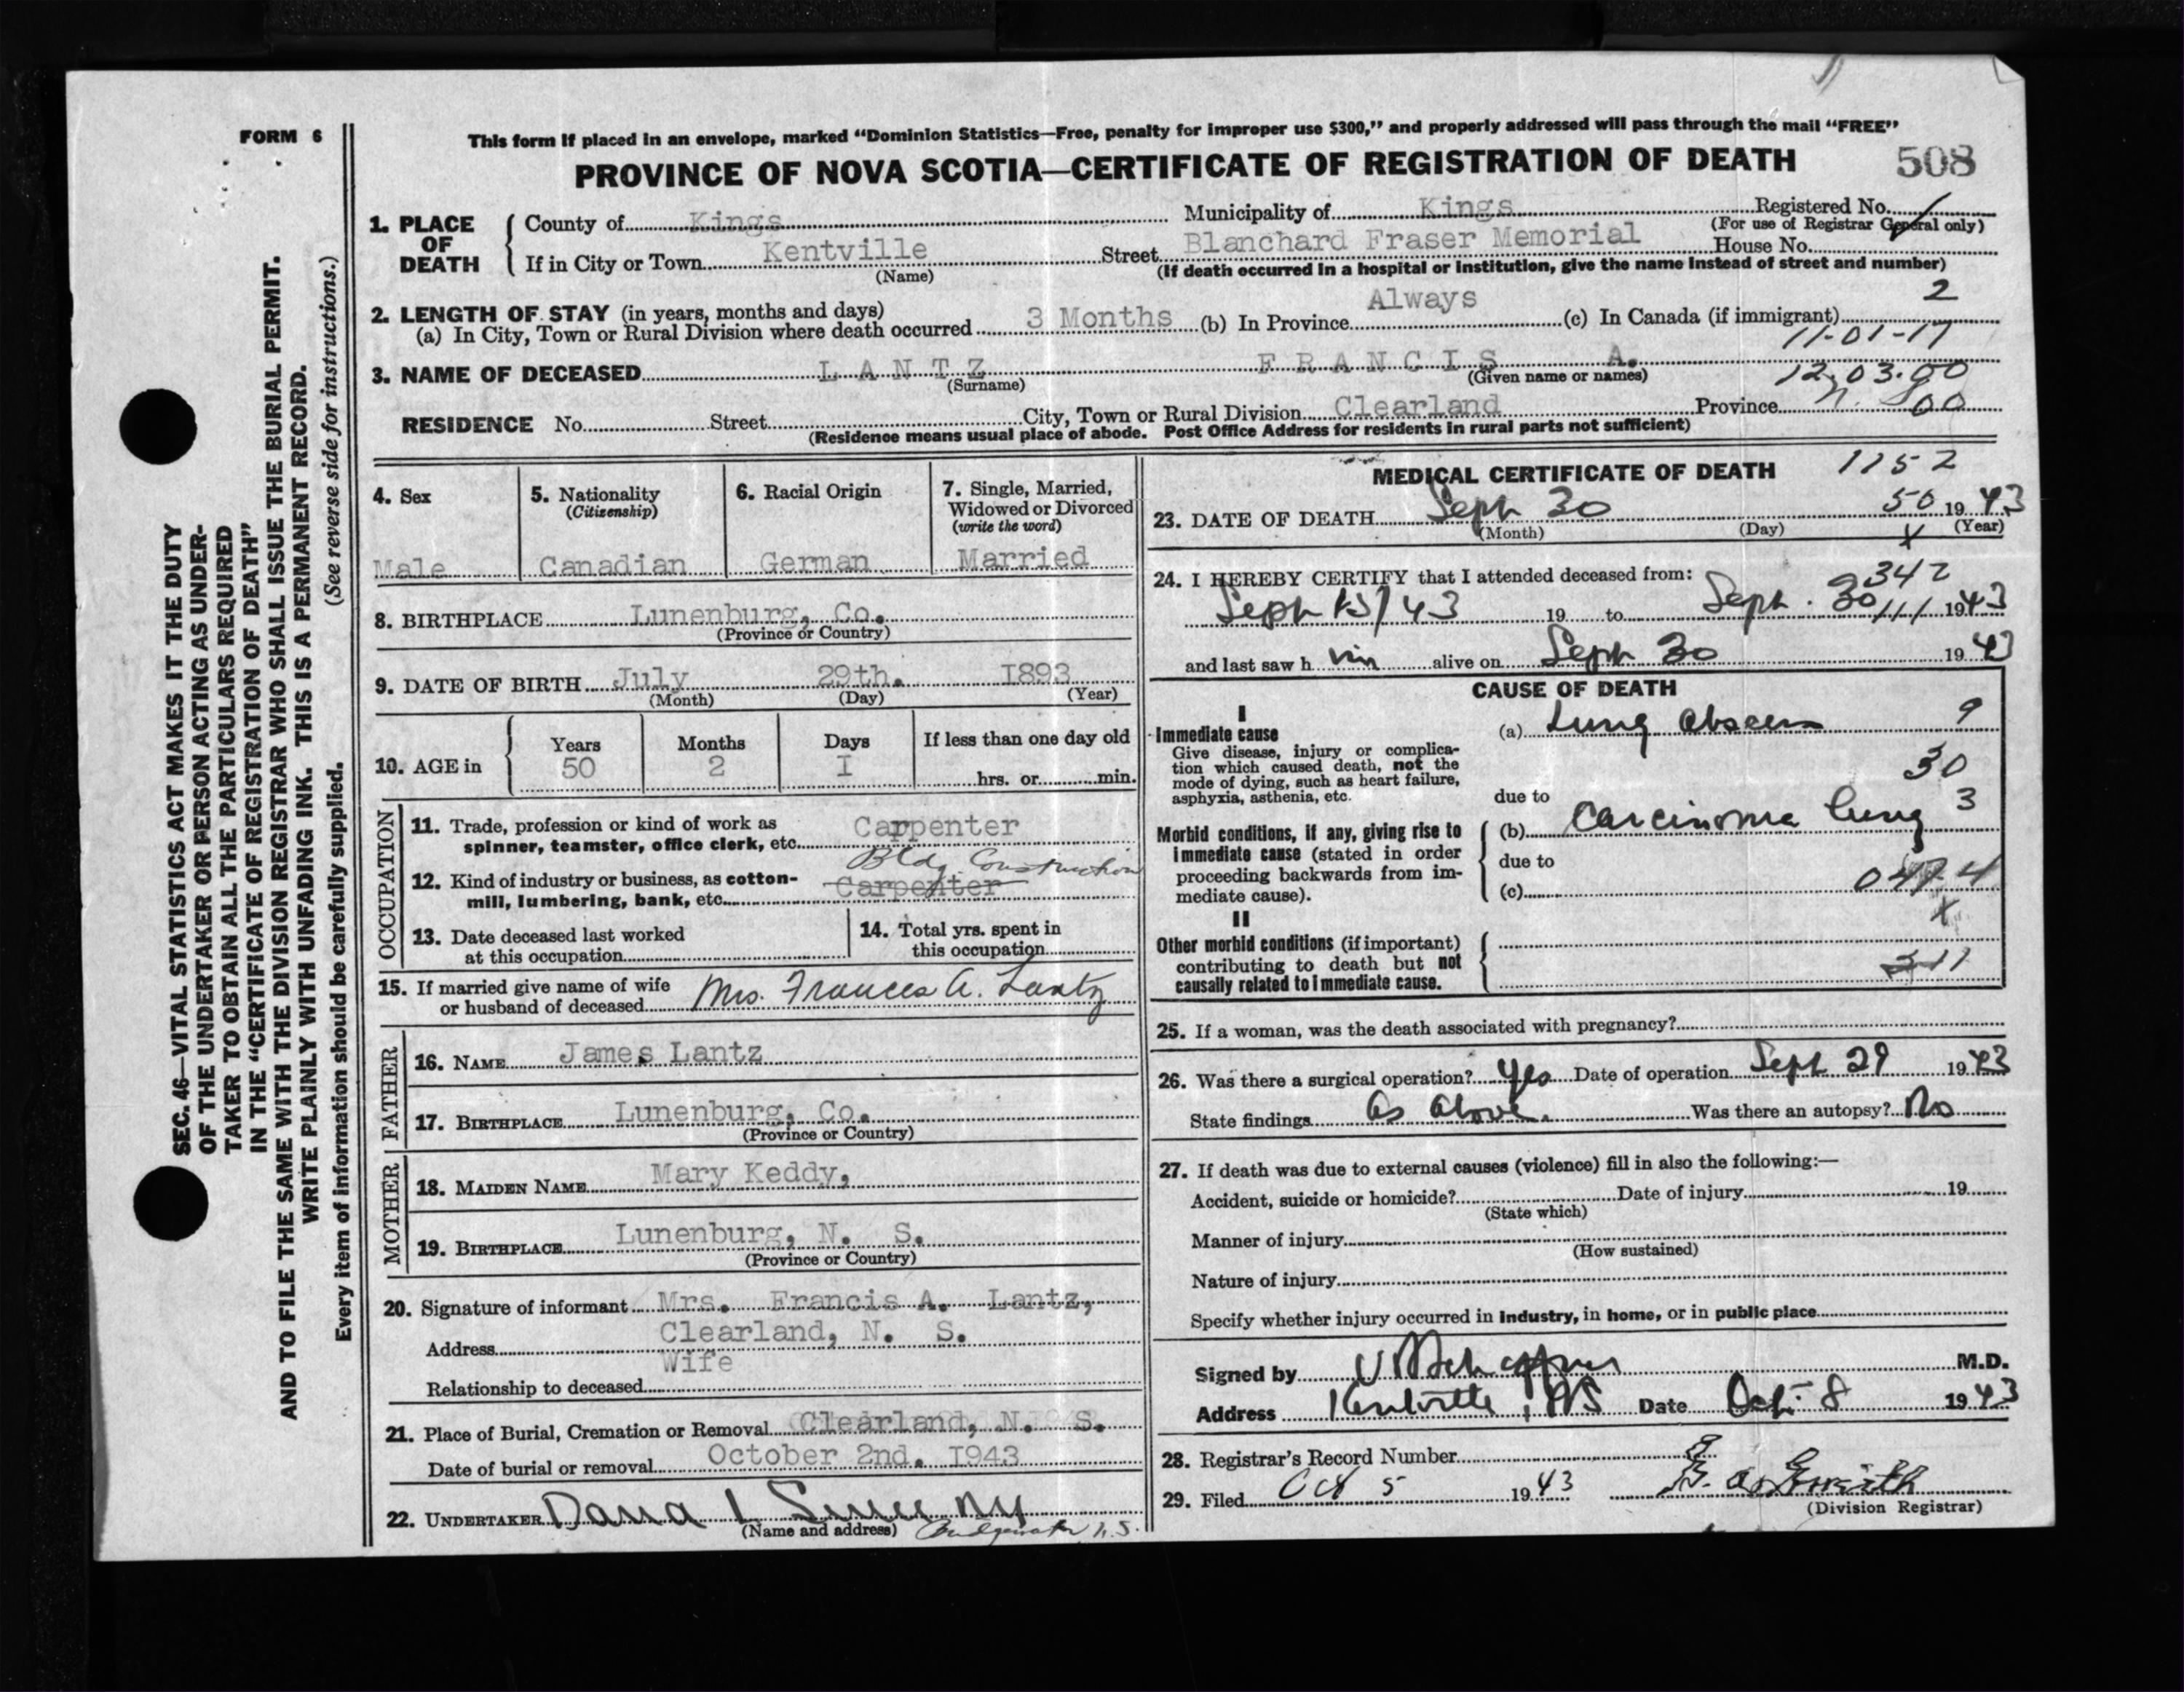 FORM 6
This form if placed in an envelope, marked "Dominion Statistics—Free, penalty for improper use $300," and properly addressed will pass through the mail "FREE"
PROVINCE OF NOVA SCOTIA—CERTIFICATE OF REGISTRATION OF DEATH
508
SEC. 46—VITAL STATISTICS ACT MAKES IT THE DUTY
OF THE UNDERTAKER OR PERSON ACTING AS UNDER-
TAKER TO OBTAIN ALL THE PARTICULARS REQUIRED
IN THE "CERTIFICATE OF REGISTRATION OF DEATH"
AND TO FILE THE SAME WITH THE DIVISION REGISTRAR WHO SHALL ISSUE THE BURIAL PERMIT.
WRITE PLAINLY WITH UNFADING INK. THIS IS A PERMANENT RECORD.
Every item of information should be carefully supplied. (See reverse side for instructions.)
1. PLACE OF DEATH
County of Kings Municipality of Kings Registered No.
(For use of Registrar General only)
If in City or Town Kentville Street Blanchard Fraser Memorial House No.
(Name) (If death occurred in a hospital or institution, give the name instead of street and number)
2. LENGTH OF STAY (in years, months and days)
(a) In City, Town or Rural Division where death occurred 3 Months (b) In Province Always (c) In Canada (if immigrant) 2
11-01-17
3. NAME OF DECEASED LANTZ FRANCIS A.
(Surname) (Given name or names)
12-03-00
RESIDENCE No. Street City, Town or Rural Division Clearland Province 00
(Residence means usual place of abode. Post Office Address for residents in rural parts not sufficient)
4. Sex
Male
5. Nationality
(Citizenship)
Canadian
6. Racial Origin
German
7. Single, Married,
Widowed or Divorced
(write the word)
Married
8. BIRTHPLACE Lunenburg, Co.
(Province or Country)
9. DATE OF BIRTH July 29th. 1893
(Month) (Day) (Year)
10. AGE in Years Months Days If less than one day old
50 2 I hrs. or min.
OCCUPATION
11. Trade, profession or kind of work as Carpenter
spinner, teamster, office clerk, etc.
12. Kind of industry or business, as cotton- Bldg Construction
mill, lumbering, bank, etc. Carpenter
13. Date deceased last worked
at this occupation
14. Total yrs. spent in
this occupation
15. If married give name of wife
or husband of deceased Mrs. Frances A. Lantz
FATHER
16. NAME James Lantz
17. BIRTHPLACE Lunenburg, Co.
(Province or Country)
MOTHER
18. MAIDEN NAME Mary Keddy,
19. BIRTHPLACE Lunenburg, N. S.
(Province or Country)
20. Signature of informant Mrs. Francis A. Lantz,
Address Clearland, N. S.
Relationship to deceased Wife
21. Place of Burial, Cremation or Removal Clearland, N. S.
Date of burial or removal October 2nd. I943
22. UNDERTAKER Dana L Sweeny
(Name and address) Bridgewater N.S.
MEDICAL CERTIFICATE OF DEATH
1152
50
23. DATE OF DEATH Sept 30 1943
(Month) (Day) (Year)
X
24. I HEREBY CERTIFY that I attended deceased from:
342
Sept 15/43 19 to Sept. 30 1943
and last saw h im alive on Sept 30 1943
CAUSE OF DEATH
I
Immediate cause
Give disease, injury or complica-
tion which caused death, not the
mode of dying, such as heart failure,
asphyxia, asthenia, etc.
(a) Lung Abscess 9
30
due to 3
Morbid conditions, if any, giving rise to
immediate cause (stated in order
proceeding backwards from im-
mediate cause).
(b) Carcinoma lung
due to
(c)
X
II
Other morbid conditions (if important)
contributing to death but not
causally related to immediate cause.
25. If a woman, was the death associated with pregnancy?
26. Was there a surgical operation? Yes Date of operation Sept 29 1943
State findings As Above. Was there an autopsy? No
27. If death was due to external causes (violence) fill in also the following:—
Accident, suicide or homicide? Date of injury 19
(State which)
Manner of injury
(How sustained)
Nature of injury
Specify whether injury occurred in industry, in home, or in public place
Signed by M.D.
Address Kentville, NS Date Oct. 8 1943
28. Registrar's Record Number
29. Filed Oct 5 1943
(Division Registrar)